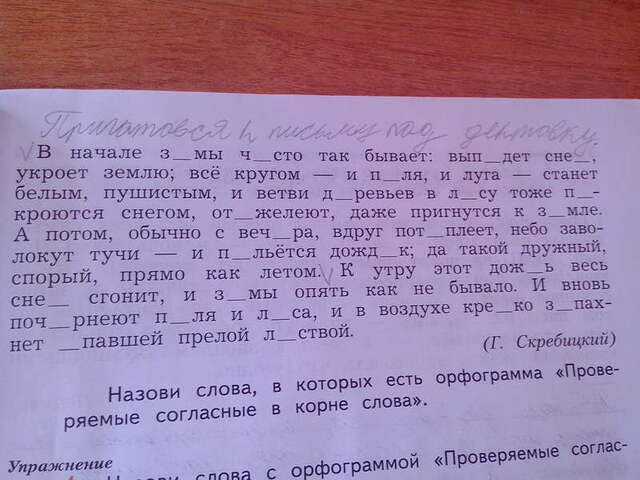 Приготовься к письму под диктовку.
√В начале з_мы ч_сто так бывает: вып_дет сне_,
укроет землю; всё кругом — и п_ля, и луга — станет
белым, пушистым, и ветви д_ревьев в л_су тоже п_-
кроются снегом, от_желеют, даже пригнутся к з_мле.
А потом, обычно с веч_ра, вдруг пот_плеет, небо заво-
локут тучи — и п_льётся дожд_к; да такой дружный,
спорый, прямо как летом.√ К утру этот дож_ь весь
сне_ сгонит, и з_мы опять как не бывало. И вновь
поч_рнеют п_ля и л_са, и в воздухе кре_ко з_пах-
нет _павшей прелой л_ствой.
(Г. Скребицкий)
Назови слова, в которых есть орфограмма «Прове-
ряемые согласные в корне слова».
Упражнение
Назови слова с орфограммой «Проверяемые соглас-